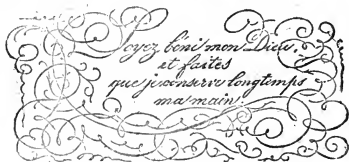 Soyez béni mon Dieu
et faites
que je conserve longtemps
ma main!